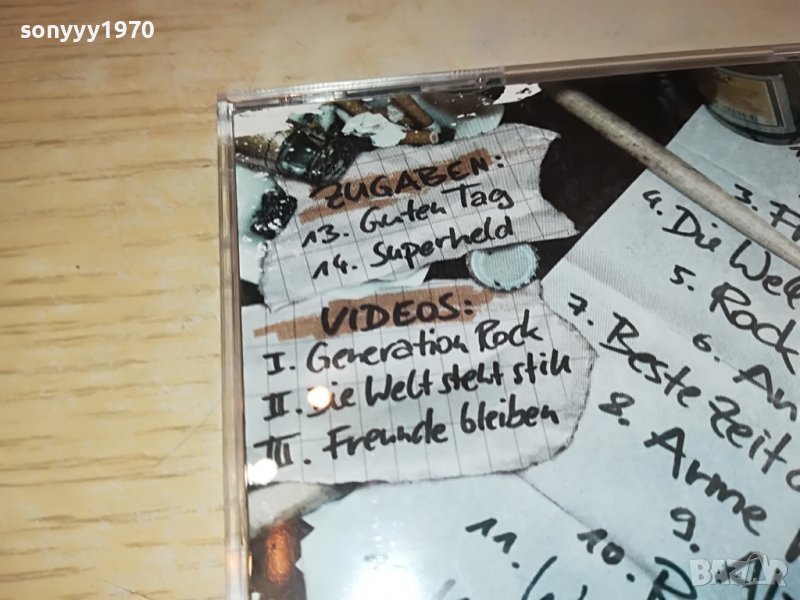 sonyyy1970
ZUGABEN:
13. Guten Tag
14. Superheld
VIDEOS:
I. Generation Rock
II. Die Welt steht still
III. Freunde bleiben
3.
4. Die Welt
5. Rock
6.
7. Beste Zeit
8. Arme
9.
10.
11.
BAZAR